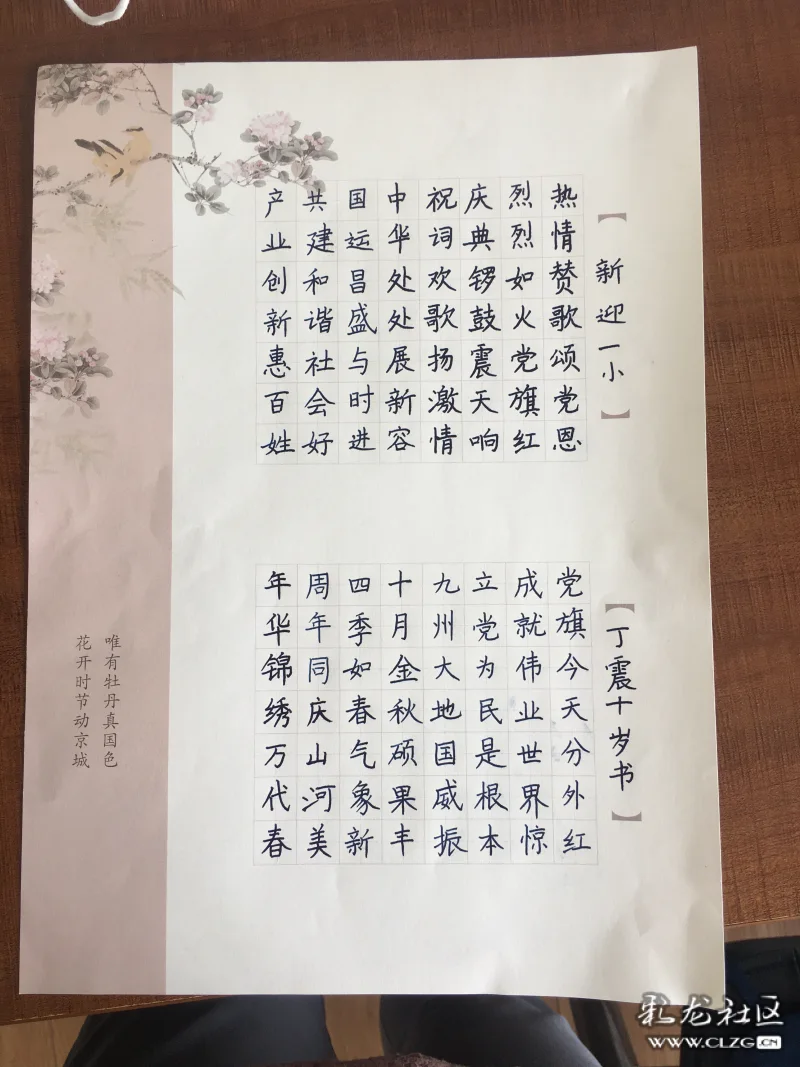 【新迎一小】
热情赞歌颂党恩
烈烈如火党旗红
庆典锣鼓震天响
祝词欢歌扬激情
中华处处展新容
国运昌盛与时进
共建和谐社会好
产业创新惠百姓
【丁震十岁书】
党旗今天分外红
成就伟业世界惊
立党为民是根本
九州大地国威振
十月金秋硕果丰
四季如春气象新
周年同庆山河美
年华锦绣万代春
唯有牡丹真国色
花开时节动京城
彩龙社区
WWW.CLZG.CN